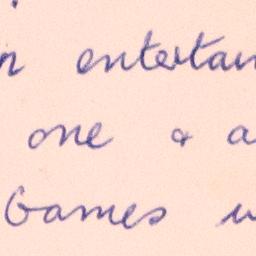 entertain
one & a
Games